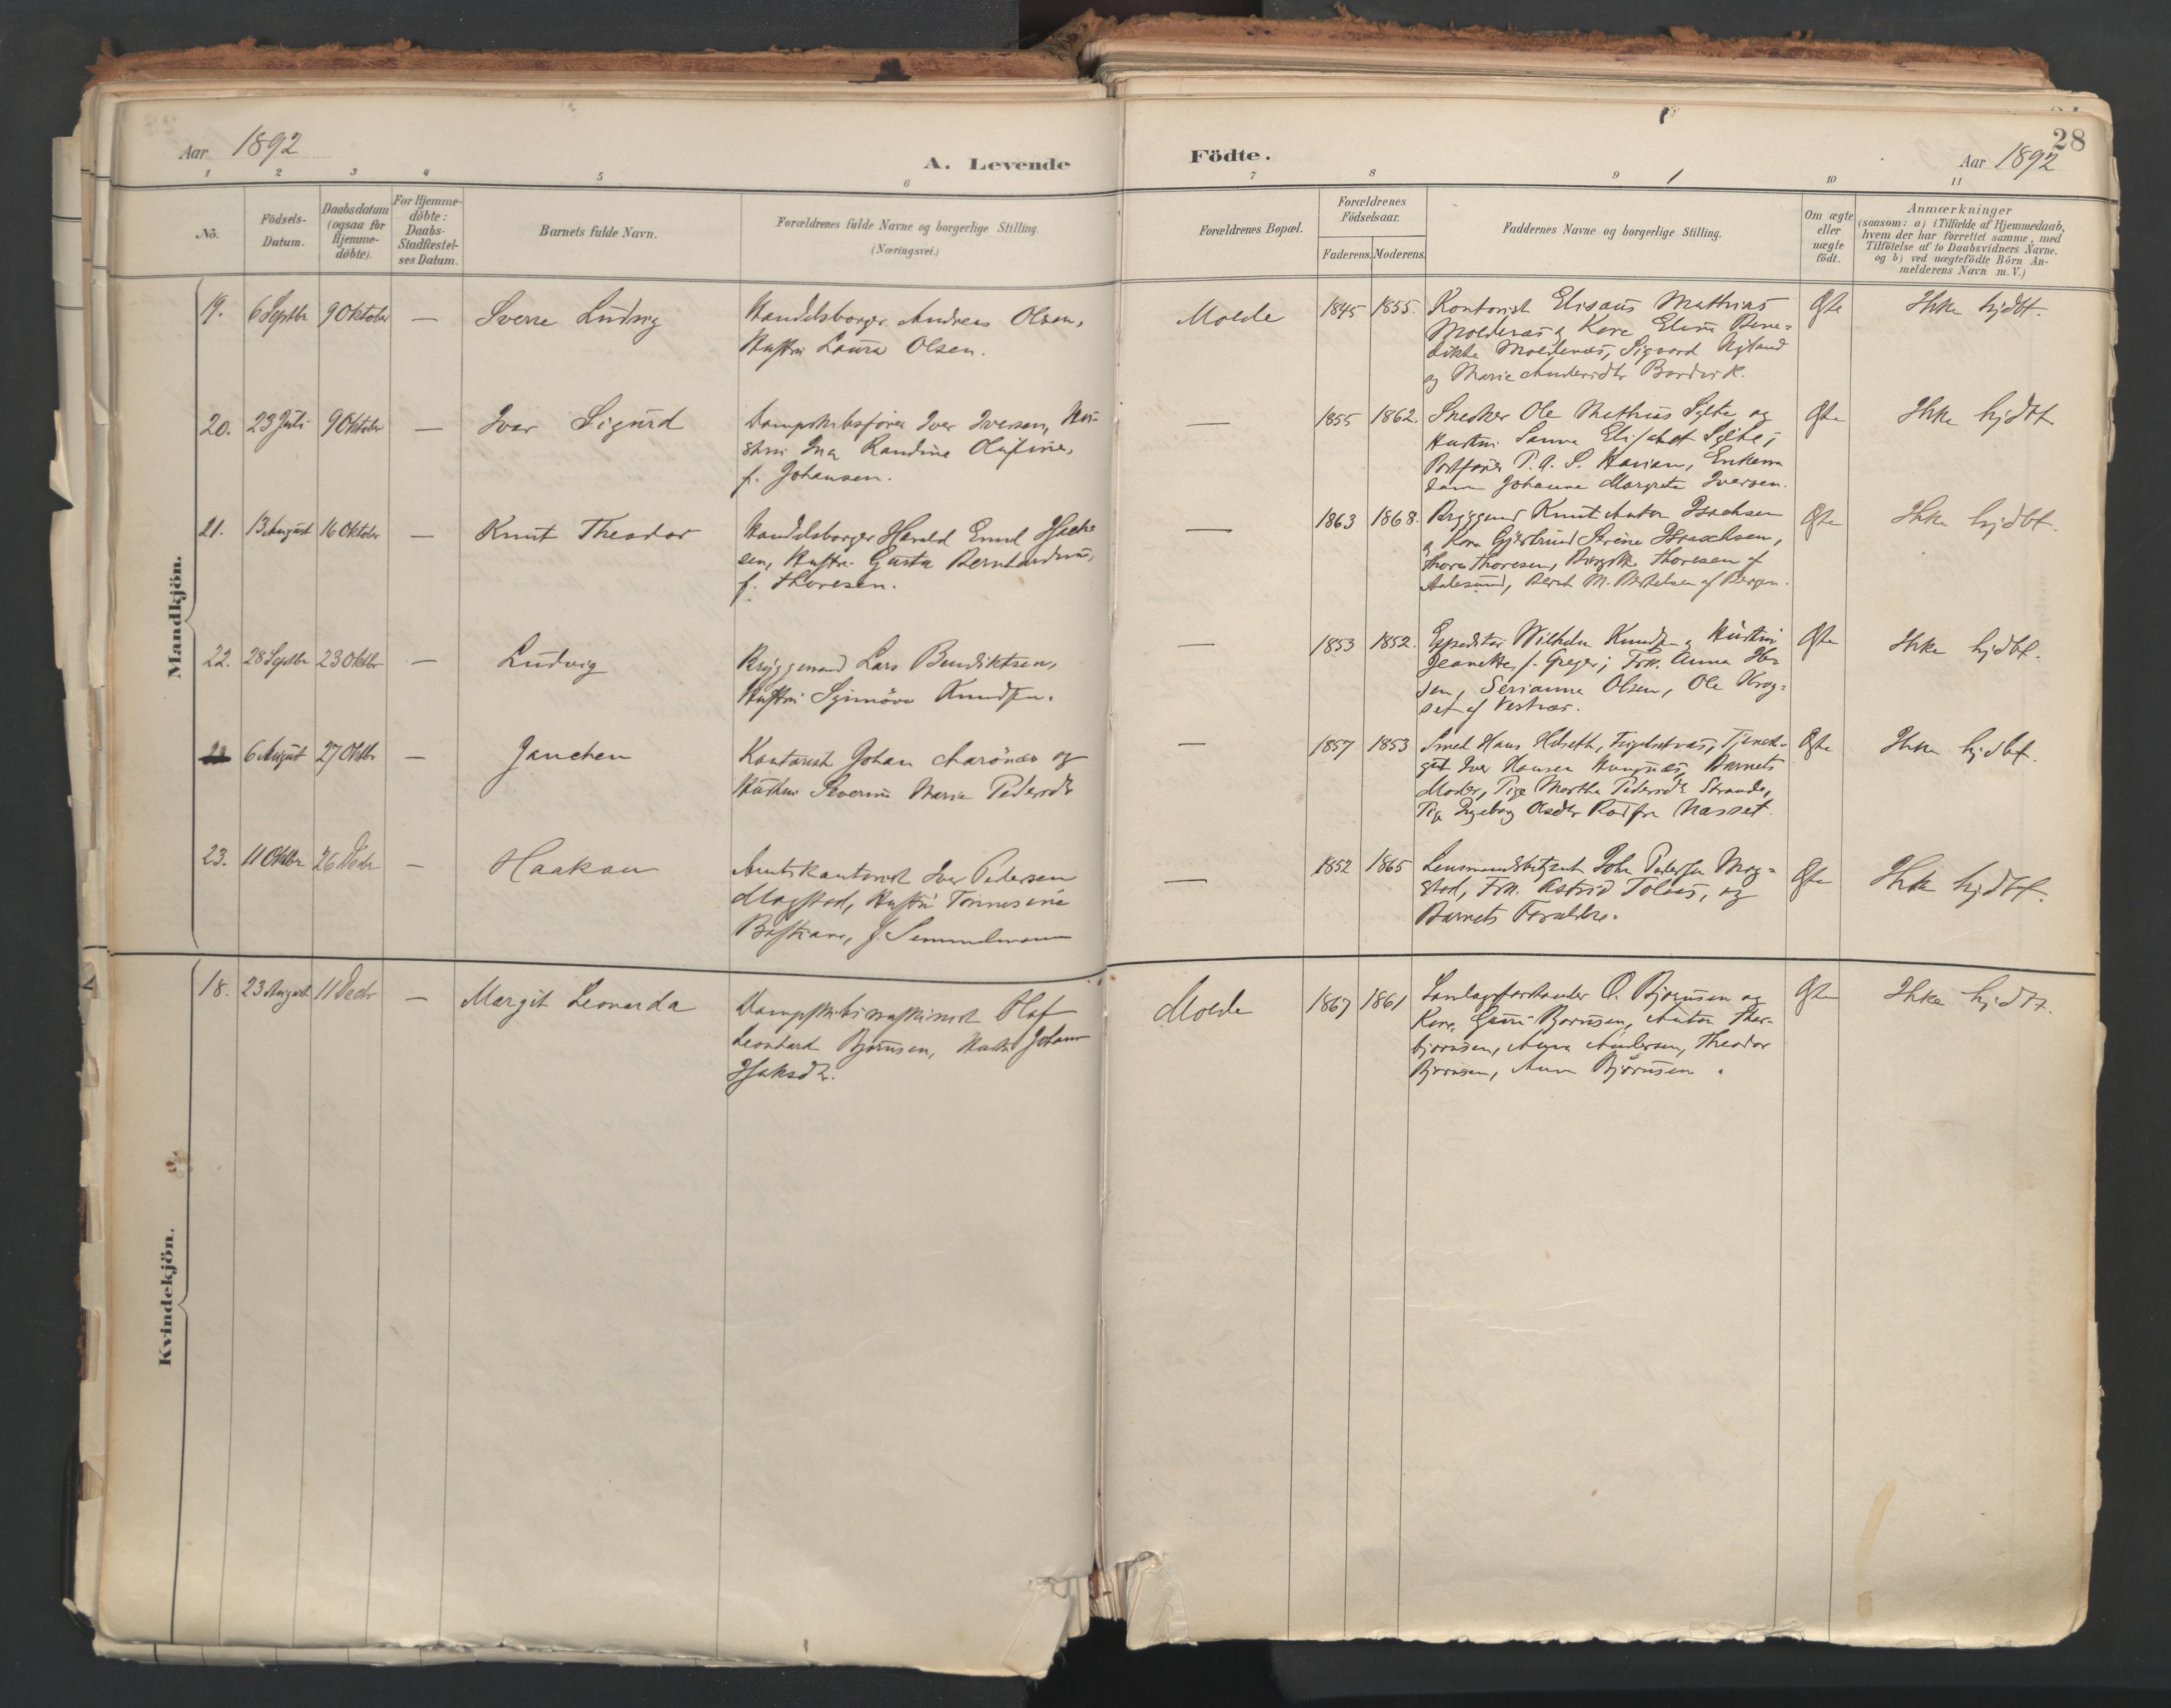 Aar 1892
A. Levende
Födte.
28
Aar 1892
1 2 3 4 5 6 7 8 9 10 11
No.
Födsels-Datum.
Daabsdatum (ogsaa for Hjemme-döbte).
For Hjemme-döbte: Daabs-Stadfæstel-ses Datum.
Barnets fulde Navn.
Forældrenes fulde Navne og borgerlige Stilling.
(Næringsvei.)
Forældrenes Bopæl.
Forældrenes Födselsaar.
Faderens. Moderens.
Faddernes Navne og borgerlige Stilling.
Om ægte eller uægte födt.
Anmærkninger
(saasom: a) i Tilfælde af Hjemmedaab,
hvem der har forrettet samme, med
Tilföielse af to Daabsvidners Navne.
og b) ved uægtefödte Börn An-
melderens Navn m. V.)
Mandkjön.
19. 6 Septbr 9 Oktober — Sverre Ludvig
Handelsborger Andreas Olsen,
Hustru Laura Olsen.
Molde 1845 1855.
Kontorist Elisæus Mathias
Moldenæs, Kone Eline Bene-
dikte Moldenæs, Sigvard
og Marie
Ægte Ikke hjdbt.
20. 23 Juli 9 Oktober — Ivar Sigurd
Dampskibsfører Iver Iversen, Hu-
stru Ina Randine Olufine,
f. Johansen.
— 1855 1862.
Snedker Ole Mathias Sylte og
Hustru Sanna Elisabet Sylte;
Postfører P. A. S. Enkem
Johanne Margrete Iversen.
Ægte Ikke hjdbt
21. 13 August 16 Oktober — Knut Theodor
Handelsborger Harald Emil Isach-
sen, Hustru Gusta Bernhardine,
f. Thoresen.
— 1863 1868.
Bryggemd Knut Anton Isachsen
og Kone Gjertrud Serine Isachsen,
Thora Thoresen, Thoresen af
Aalesund, Bernt M. Bertelsen af Bergen.
Ægte Ikke hjdbt.
22. 28 Septbr 23 Oktbr — Ludvig
Bryggemand Lars Bendiktsen,
Hustru Synnöve Knudsen.
— 1853 1852.
Expeditör Wilhelm Knudsen og Hustru
Jeanette, f. Greger; Frk. Anna
Serianna Olsen, Ole Krog-
set af Vestnæs.
Ægte Ikke hjdbt.
6 August 27 Oktbr — Janchen
Kontorist Johan Aarönæs og
Hustru Severine Marie Pedersdtr
— 1857 1853
Smed Hans Helseth, Tjeneste-
gut Iver Hansen Barnets
Moder, Pige Martha Pedersdtr Strande,
Pige Ingeborg Olsdtr Rød fra Næsset.
Ægte Ikke hjdbt.
23. 11 Oktbr 26 Decbr — Haakon
Amtskontorist Iver Pedersen
Magstad, Hustru Tonnesine
Bastiane, f. Semmelmann
— 1852 1865
Lensmandsbetjent John Pedersen Mag-
stad, Frk. Astrid Tolaas, og
Barnets Forældre.
Ægte Ikke hjdbt.
Kvindekjön.
18. 23 August 11 Decbr — Margit Leonarda
Dampskibsmaskinist Olaf
Leonhard Bjørnsen, Hustru Johanne
Isaksdtr.
Molde 1867 1861
Samlagsforstander O. Bjørnsen og
Kone, Guri Bjørnsen, Anton Thor-
bjørnsen, Anna Andersen, Theodor
Bjørnsen, Anna Bjørnsen.
Ægte Ikke hjdbt.